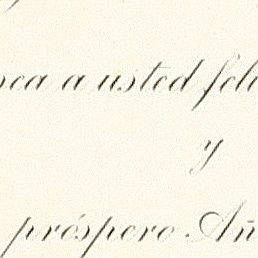 sea a usted feli
y
próspero Añ